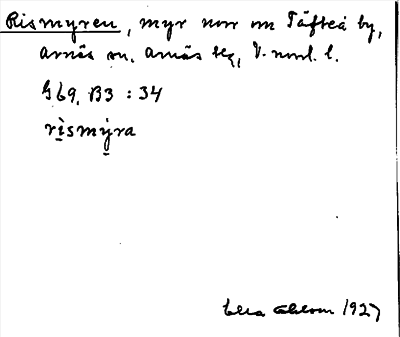 Rismyren, myr norr om Täfteå by,
Arnäs sn, Arnäs tg, V. norrl. l.
G69, B3 : 34
rismyra
1927